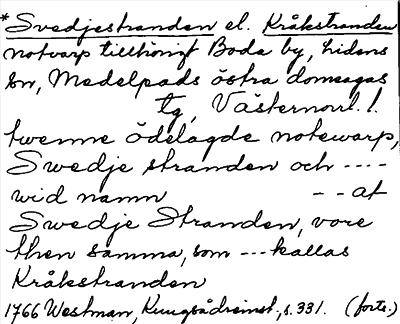 *Svedjestranden el. Kråkstranden
notvarp tillhörigt Boda by, Lidens
sn, Medelpads östra domsagas
tg, Västernorrl. l.
twenne ödelagde notewarp,
Swedje stranden och ----
wid namn -- at
Swedje Stranden, vore
then samma, som --- kallas
Kråkstranden
1766 Westman, s. 331. (forts.)